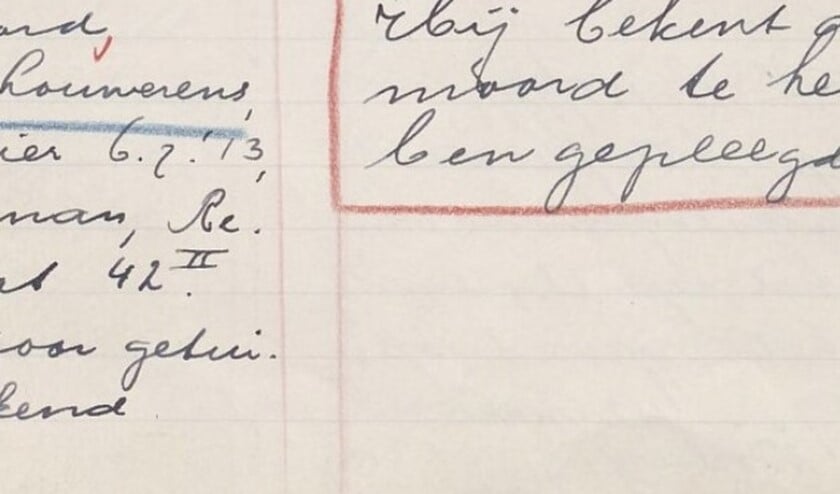 ard,
houwerens,
ier 6.7.'13,
man, Re.
at 42 II.
oor getui.
kend
rbij bekent d
moord te he
ben gepleegd